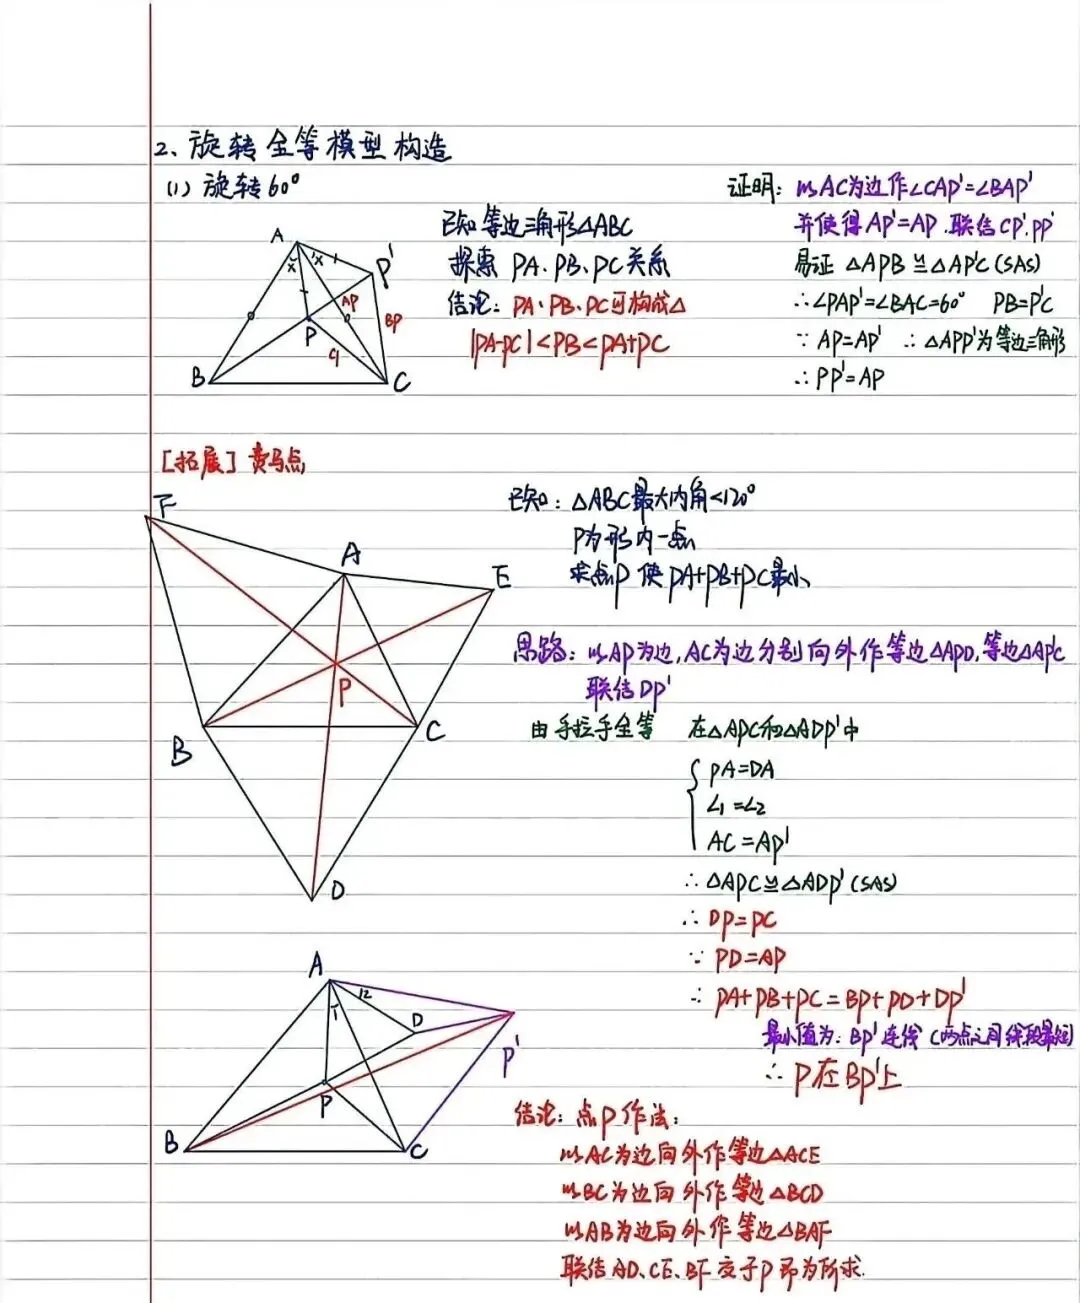 2、旋转全等模型构造
(1) 旋转60°
已知等边三角形△ABC
探索 PA、PB、PC关系
结论：PA、PB、PC可构成△
|PA-PC|<PB<PA+PC
证明：以AC为边作∠CAP'=∠BAP'
并使得AP'=AP.联结CP'.PP'
易证 △APB≌△AP'C(SAS)
∴∠PAP'=∠BAC=60° PB=P'C
∵ AP=AP' ∴△APP'为等边三角形
∴PP'=AP
A
x
x
P'
AP
BP
P
B
C
[拓展] 费马点
F
A
E
P
B
C
D
已知：△ABC最大内角<120°
P为形内一点
求点P 使PA+PB+PC最小
思路：以AP为边,AC为边分别向外作等边△APD,等边△AP'C
联结DP'
由手拉手全等 在△APC和△ADP'中
PA=DA
∠1=∠2
AC=AP'
∴△APC≌△ADP'(SAS)
∴DP=PC
∵ PD=AP
∴ PA+PB+PC=BP+PD+DP'
最小值为：BP'连线(两点之间线段最短)
∴P在BP'上
A
1
2
D
P'
P
B
C
结论：点P作法：
以AC为边向外作等边△ACE
以BC为边向外作等边△BCD
以AB为边向外作等边△BAF
联结AD、CE、BF交于P即为所求.